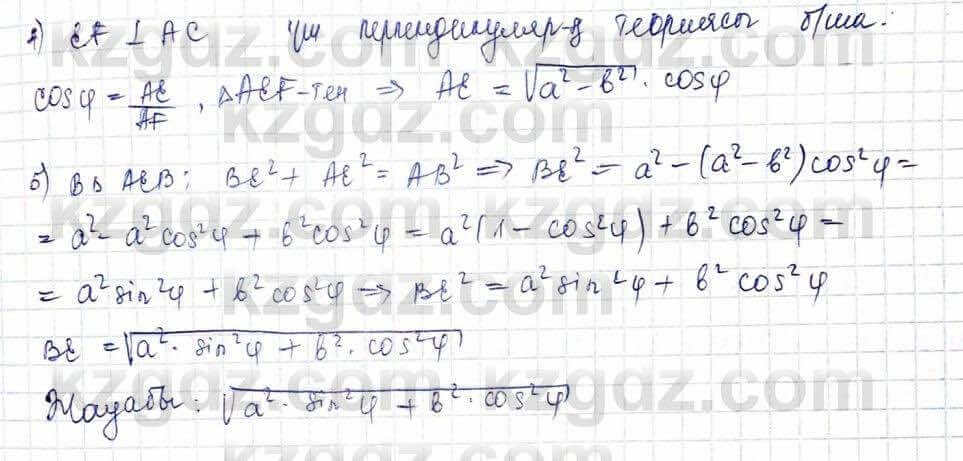 а) EF ⊥ AC үш перпендикуляр-р теориясы б/ша:
cosφ = AE/AF , △AEF-тен ⇒ AE = √(a² - b²) · cosφ
б) В △ AEB: BE² + AE² = AB² ⇒ BE² = a² - (a² - b²)cos²φ =
= a² - a²cos²φ + b²cos²φ = a²(1 - cos²φ) + b²cos²φ =
= a²sin²φ + b²cos²φ ⇒ BE² = a²sin²φ + b² cos²φ
BE = √(a² · sin²φ + b² · cos²φ)
Жауабы: √(a² · sin²φ + b² · cos²φ)
kzgdz.com
kzgdz.com
kzgdz.com
kzgdz.com